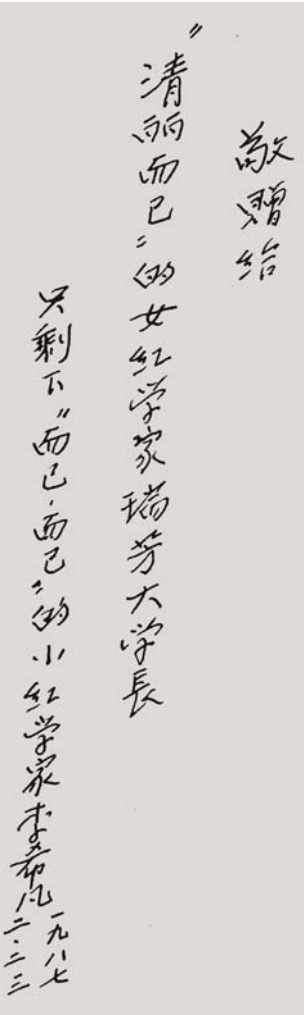 敬赠给
“清丽而已”的女红学家瑞芳大学長
只剩下“而已,而已”的小红学家李希凡
一九八七
二·二三